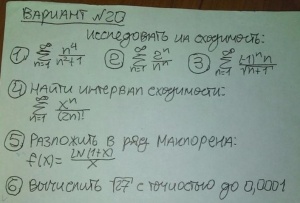 ВАРИАНТ №20
ИССЛЕДОВАТЬ НА СХОДИМОСТЬ:
① ∑_{n=1}^{∞} n⁴/(n²+1) ② ∑_{n=1}^{∞} 2ⁿ/nⁿ ③ ∑_{n=1}^{∞} (-1)ⁿn/√(n+1)
④ НАЙТИ ИНТЕРВАЛ СХОДИМОСТИ:
∑_{n=1}^{∞} xⁿ/(2n)!
⑤ РАЗЛОЖИТЬ В РЯД МАКЛОРЕНА:
f(x)= LN(1+X)/X
⑥ ВЫЧИСЛИТЬ √27 С ТОЧНОСТЬЮ ДО 0,0001